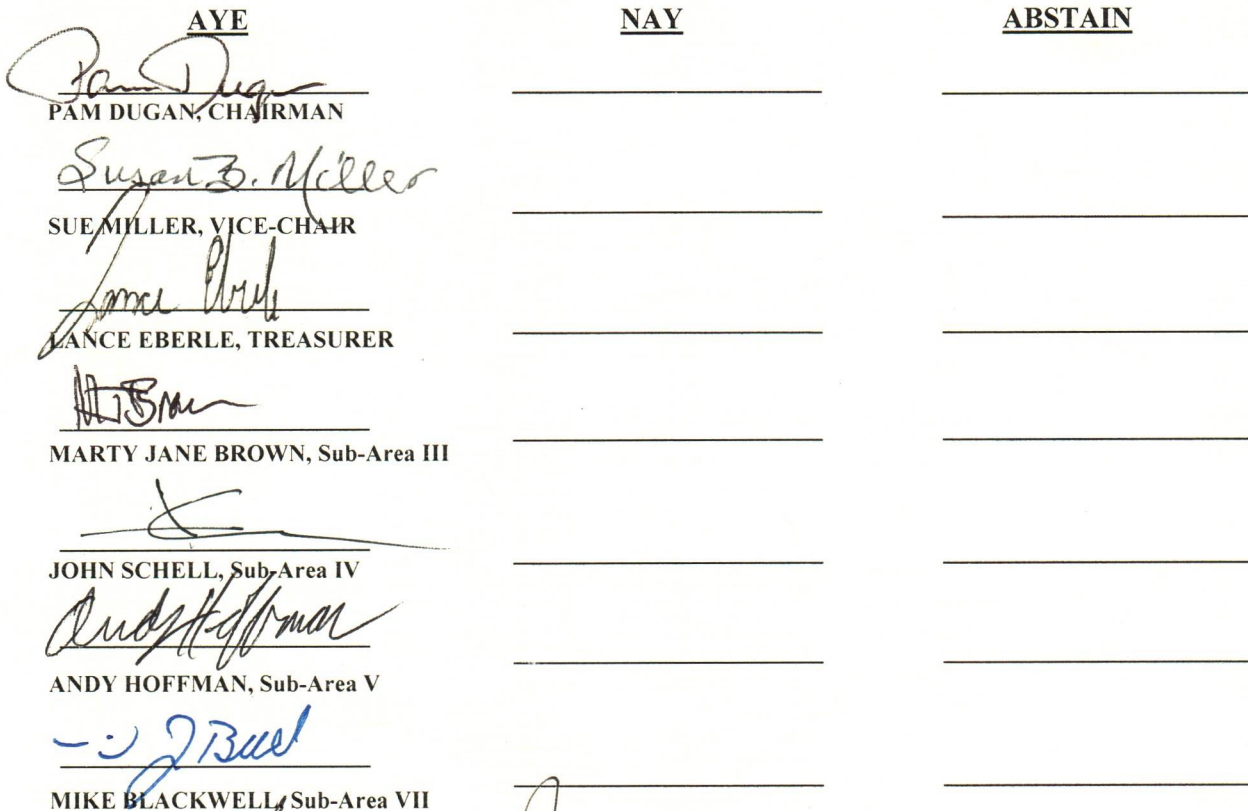 AYE NAY ABSTAIN
Pam Dugan
PAM DUGAN, CHAIRMAN
Susan B. Miller
SUE MILLER, VICE-CHAIR
Lance Eberle
LANCE EBERLE, TREASURER
MJBrown
MARTY JANE BROWN, Sub-Area III
JOHN SCHELL, Sub-Area IV
Andy Hoffman
ANDY HOFFMAN, Sub-Area V
MIKE BLACKWELL, Sub-Area VII